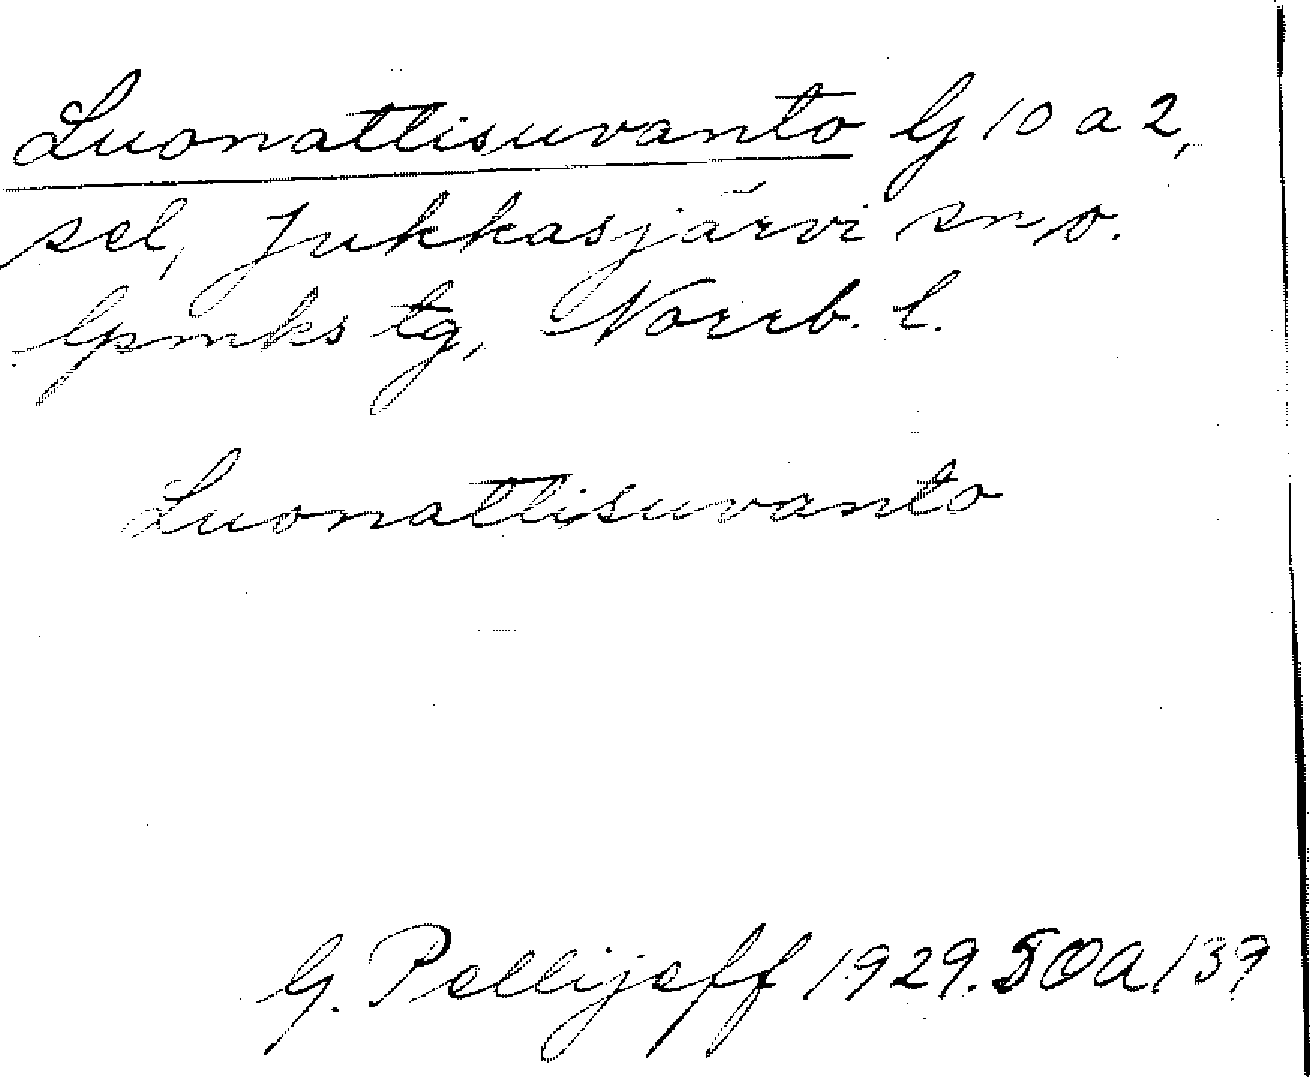 Luonattisuvanto G 10 a 2,
sel, Jukkasjärvi sn o.
lpmks tg, Norrb. l.
Luonattisuvanto
G. Pellijeff 1929. SOA 139